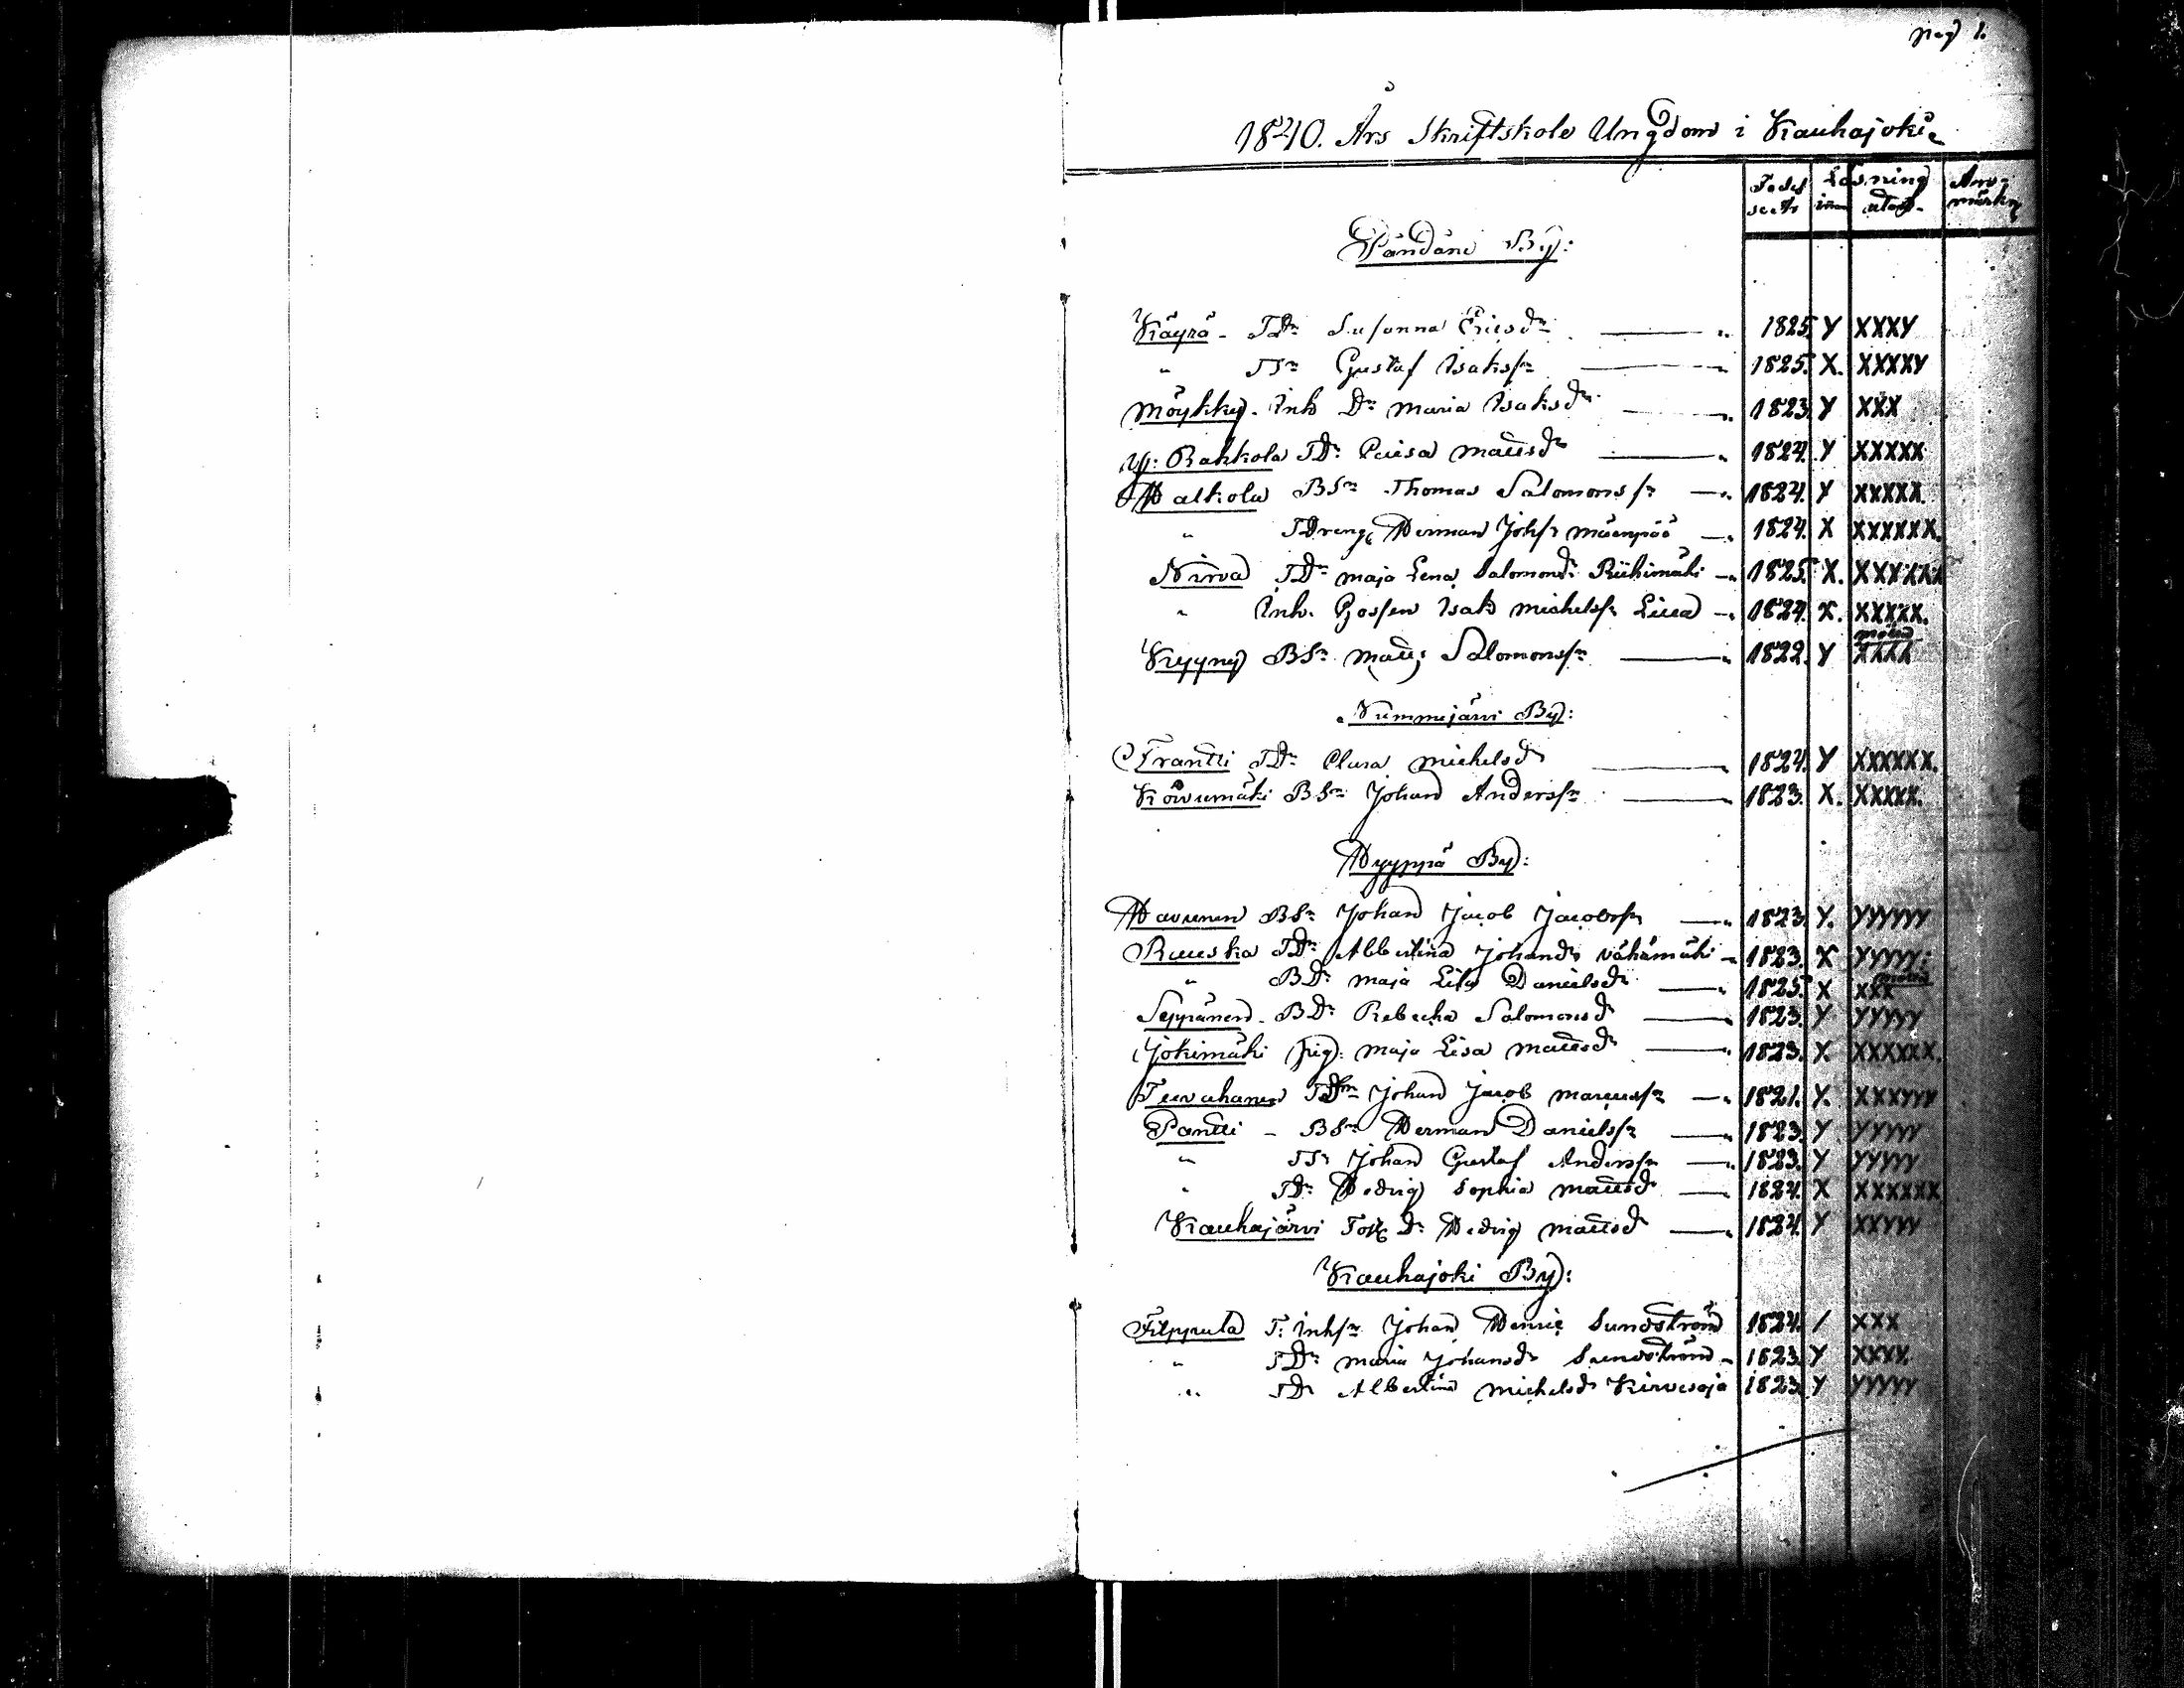 pag 1.
1840. Års Skriftskole Ungdom i Kauhajoki
Födelseår Läsning Anmärkn
inn utant.
Pändäne By:
Käyrä - TDr Susanna Ericsdr — " 1825 Y XXXY
" TSn Gustaf Isakssn — " 1825. X. XXXXY
Möykky. Inh Dr Maria Isaksdr — " 1823. Y XXX
Y: Rahkola TDr Caisa Mattsdr — " 1824. Y XXXXX
Halkola BSn Thomas Salomonssn — " 1824. Y XXXXX.
" TDreng Herman Johss Mäenpää — " 1824. X XXXXXX.
Nirva TDr Maja Lena Salomonsdr Riihimäki — " 1825. X. XXXXXX
" Inh. Gossen Isak Michelss — " 1824. X. XXXXX.
Kyyny BSn Matts Salomonssn — " 1822. Y XXXX
Nummijärvi By:
Frantti TDr Clara Michelsdr — " 1824. Y XXXXXX.
Koivumäki BSn Johan Anderssn — " 1823. X. XXXXX.
Hyyppä By:
Havunen BSn Johan Jacob Jacobssn — " 1823. Y. YYYYYY
Rauska TDr Albertina Johansdr Vähämäki — " 1823. X YYYYY.
" BDr Maja Lisa Danielsdr — " 1825. X XXX
Seppänen - BDr Rebecka Salomonsdr — " 1823. Y YYYYY
Jokimäki Pig: Maja Lisa Mattsdr — " 1823. Y. XXXXXX.
Johan Jacob — " 1821. Y. XXXYYY
Pantti - BSn Herman Danielssn — " 1823. Y YYYYY
" TSn Johan Gustaf Anderssn — " 1823. Y YYYYY
" TDr Hedvig Sophia Mattsdr — " 1824. X XXXXXX
Kauhajärvi Torp Dr Hedvig Mattsdr — " 1824. Y XXYYY
Kauhajoki By:
Filppula T: Inhsn Johan Henric Sundström 1824. / XXX
" TDr Maria Johansdr Sundström - 1823. Y XXXY.
" TDr Albertina Michelsdr Kirvesoja 1823. Y YYYYY